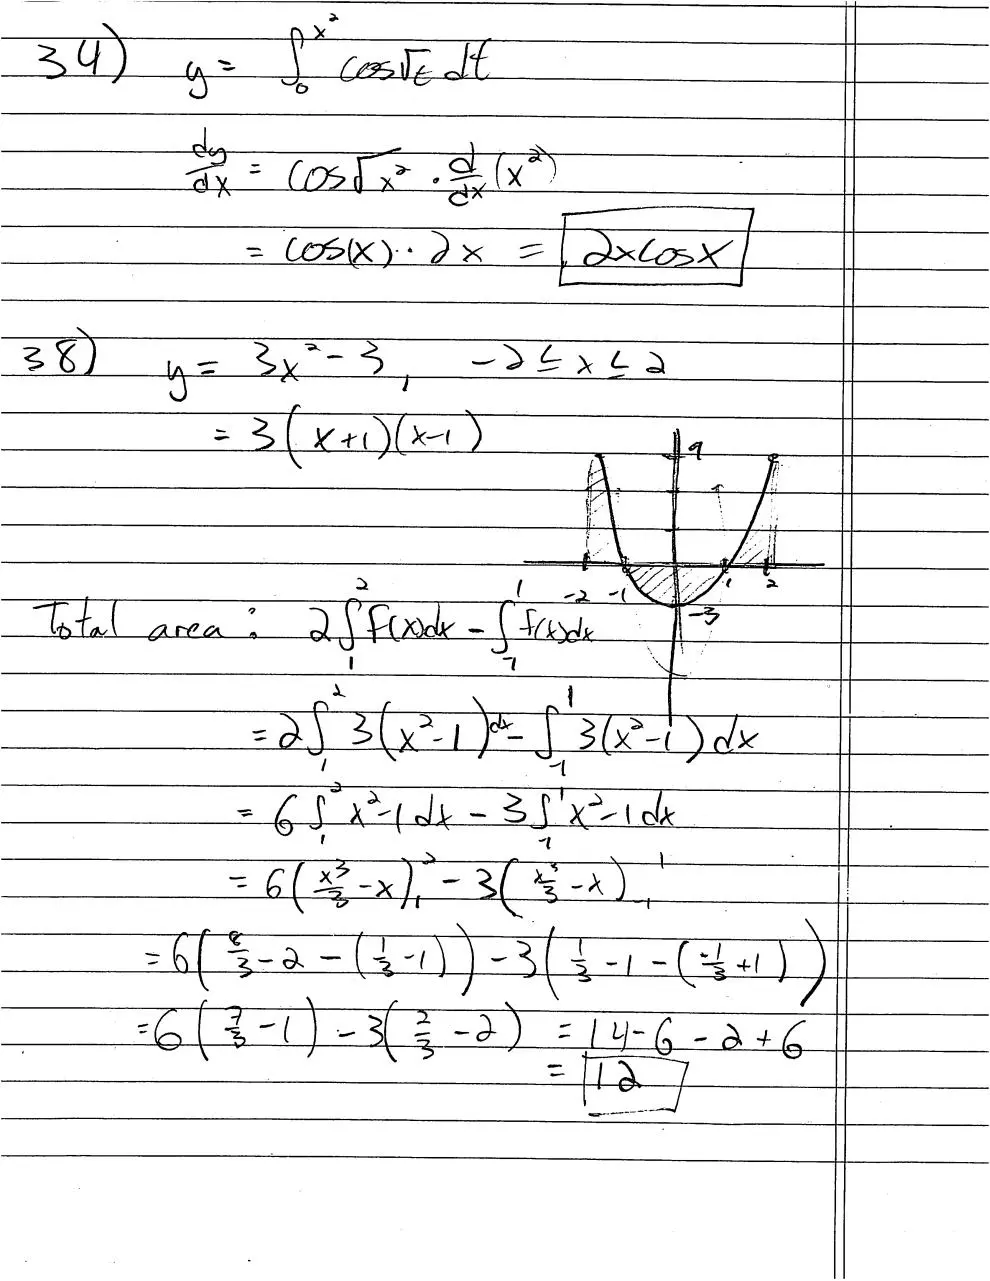 34) y = ∫₀^(x²) cos√t dt
dy/dx = cos√x² · d/dx (x²)
= cos(x) · 2x = 2xcosx
38) y = 3x² - 3, -2 ≤ x ≤ 2
= 3(x+1)(x-1)
9
-2 -1 1 2
-3
Total area: 2∫₁² f(x)dx - ∫₋₁¹ f(x)dx
= 2∫₁² 3(x²-1)dx - ∫₋₁¹ 3(x²-1)dx
= 6∫₁² x²-1dx - 3∫₋₁¹ x²-1dx
= 6(x³/3 - x)₁² - 3(x³/3 - x)₋₁¹
= 6(8/3 - 2 - (1/3 - 1)) - 3(1/3 - 1 - (-1/3 + 1))
= 6(7/3 - 1) - 3(2/3 - 2) = 14 - 6 - 2 + 6
= 12